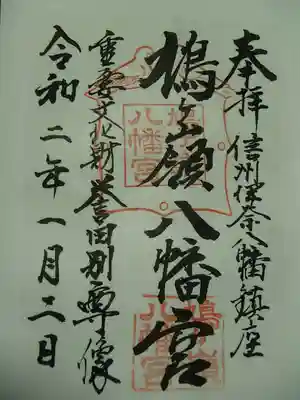 奉拝 信州伊奈八幡鎮座
鳩ヶ嶺八幡宮
重要文化財 誉田別尊像
令和二年一月二日
八幡宮
鳩ヶ嶺
八幡宮